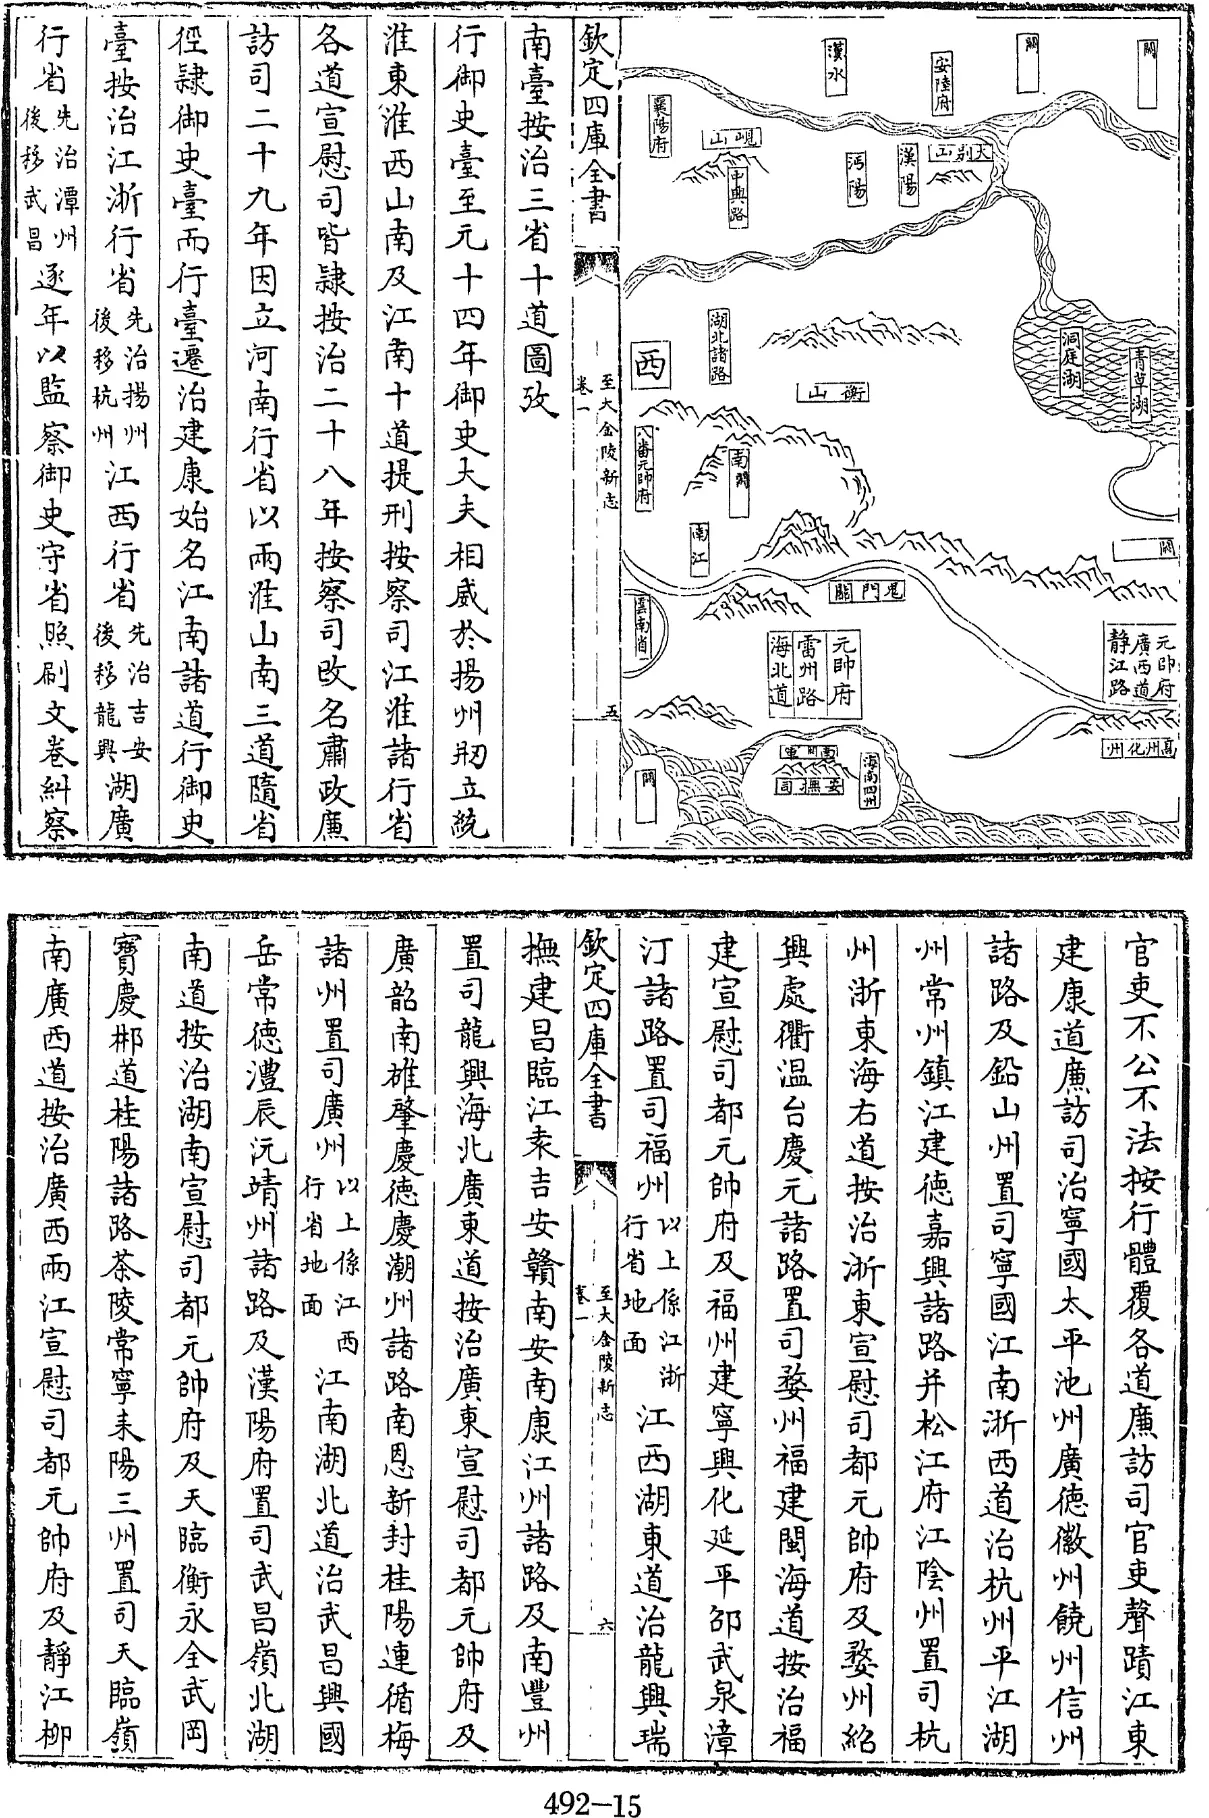 闕
闕
安陸府
漢水
襄陽府
峴山
中興路
沔陽
漢陽
大别山
洞庭湖
青草湖
湖北諸路
西
衡山
八番元帥府
南闕
南江
闕
鬼門關
雲南省
元帥府
雷州路
海北道
元帥府
廣西道
静江路
高州化州
海南四州
安撫司
闕
欽定四庫全書
至大金陵新志
卷一
五
南臺按治三省十道圖攷
行御史臺至元十四年御史大夫相威於揚州剏立統
淮東淮西山南及江南十道提刑按察司江淮諸行省
各道宣慰司皆隷按治二十八年按察司改名肅政廉
訪司二十九年因立河南行省以兩淮山南三道隨省
徑隷御史臺而行臺遷治建康始名江南諸道行御史
臺按治江浙行省先治揚州後移杭州江西行省先治吉安後移龍興湖廣
行省先治潭州後移武昌逐年以監察御史守省照刷文卷糾察
官吏不公不法按行體覆各道廉訪司官吏聲蹟江東
建康道廉訪司治寧國太平池州廣德徽州饒州信州
諸路及鉛山州置司寧國江南浙西道治杭州平江湖
州常州鎮江建德嘉興諸路并松江府江陰州置司杭
州浙東海右道按治浙東宣慰司都元帥府及婺州紹
興處衢温台慶元諸路置司婺州福建閩海道按治福
建宣慰司都元帥府及福州建寧興化延平邵武泉漳
汀諸路置司福州以上係江浙行省地面江西湖東道治龍興瑞
欽定四庫全書
至大金陵新志
卷一
六
撫建昌臨江袁吉安贛南安南康江州諸路及南豐州
置司龍興海北廣東道按治廣東宣慰司都元帥府及
廣韶南雄肇慶德慶潮州諸路南恩新封桂陽連循梅
諸州置司廣州以上係江西行省地面江南湖北道治武昌興國
岳常德澧辰沅靖州諸路及漢陽府置司武昌嶺北湖
南道按治湖南宣慰司都元帥府及天臨衡永全武岡
寳慶郴道桂陽諸路茶陵常寧耒陽三州置司天臨嶺
南廣西道按治廣西兩江宣慰司都元帥府及靜江柳
492-15